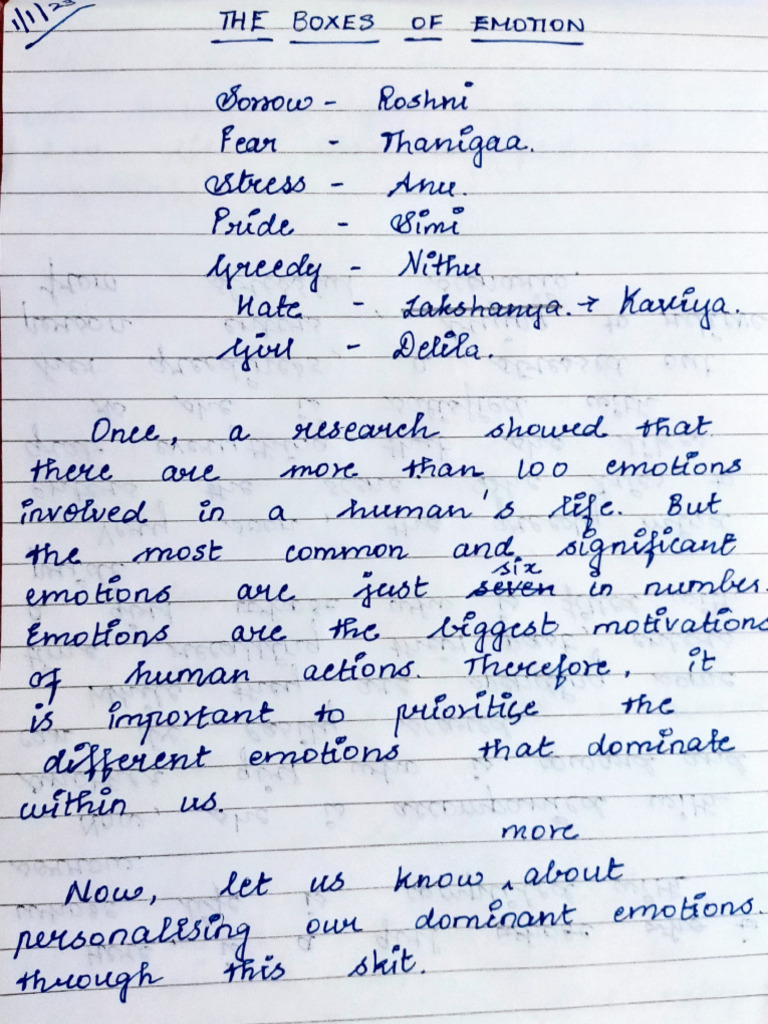 1/1/23
THE BOXES OF EMOTION
Sorrow - Roshni
Fear - Thanigaa.
Stress - Anu.
Pride - Simi
Greedy - Nithu
Hate - Lakshanya. → Kaviya.
Girl - Delila.
Once, a research showed that
there are more than 100 emotions
involved in a human's life. But
the most common and significant
six
emotions are just seven in number.
Emotions are the biggest motivations
of human actions. Therefore, it
is important to prioritize the
different emotions that dominate
within us.
more
Now, let us know ^ about
personalising our dominant emotions.
through this skit.